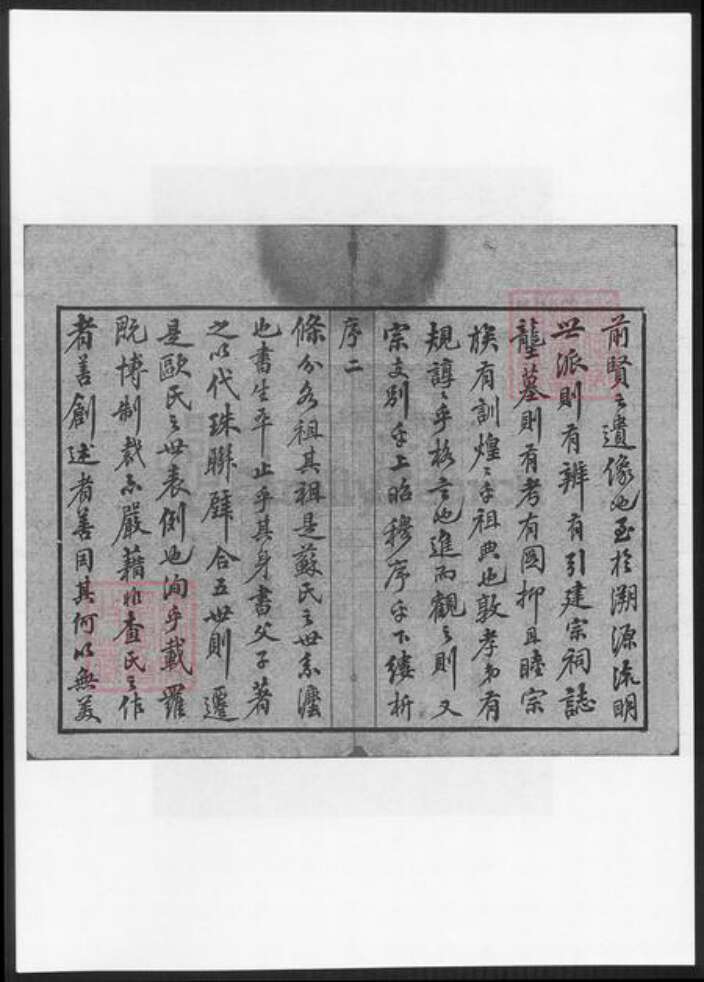 前賢之遺像也至於溯源流明
世派則有辨有引建宗祠誌
壟墓則有考有圖抑且睦宗
族有訓煌々乎祖典也敦孝弟有
規諄々乎格言也進而觀之則又
宗支別乎上昭穆序乎下縷析
序二
條分各祖其祖是蘇氏之世系瀍
也書生平止乎其身書父子著
之以代珠聯璧合五世則遷
是歐氏之世表例也洵乎載羅
既博制裁亦嚴藉非查氏之作
者善創述者善因其何以無美